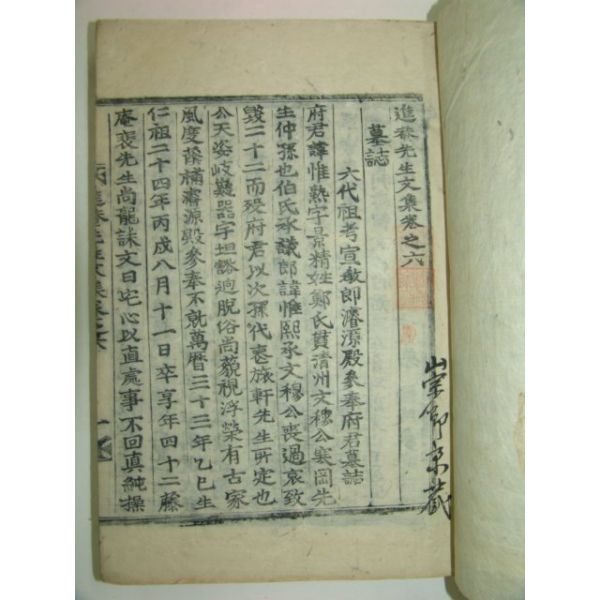 進菴先生文集卷之六
墓誌
六代祖考宣敎郞濬源殿參奉府君墓誌
府君諱惟熟字景精姓鄭氏貫淸州文穆公寒岡先
生仲孫也伯氏承議郞諱惟熙承文穆公喪過哀致
毀二十二而歿府君以次孫代喪旅軒先生所定也
公天姿岐嶷器宇坦豁逈脫俗尙藐視浮榮有古家
風度薦補濬源殿參奉不就萬曆三十三年乙巳生
仁祖二十四年丙戌八月十一日卒享年四十二藤
庵裵先生尙龍誄文曰宅心以直處事不回眞純操